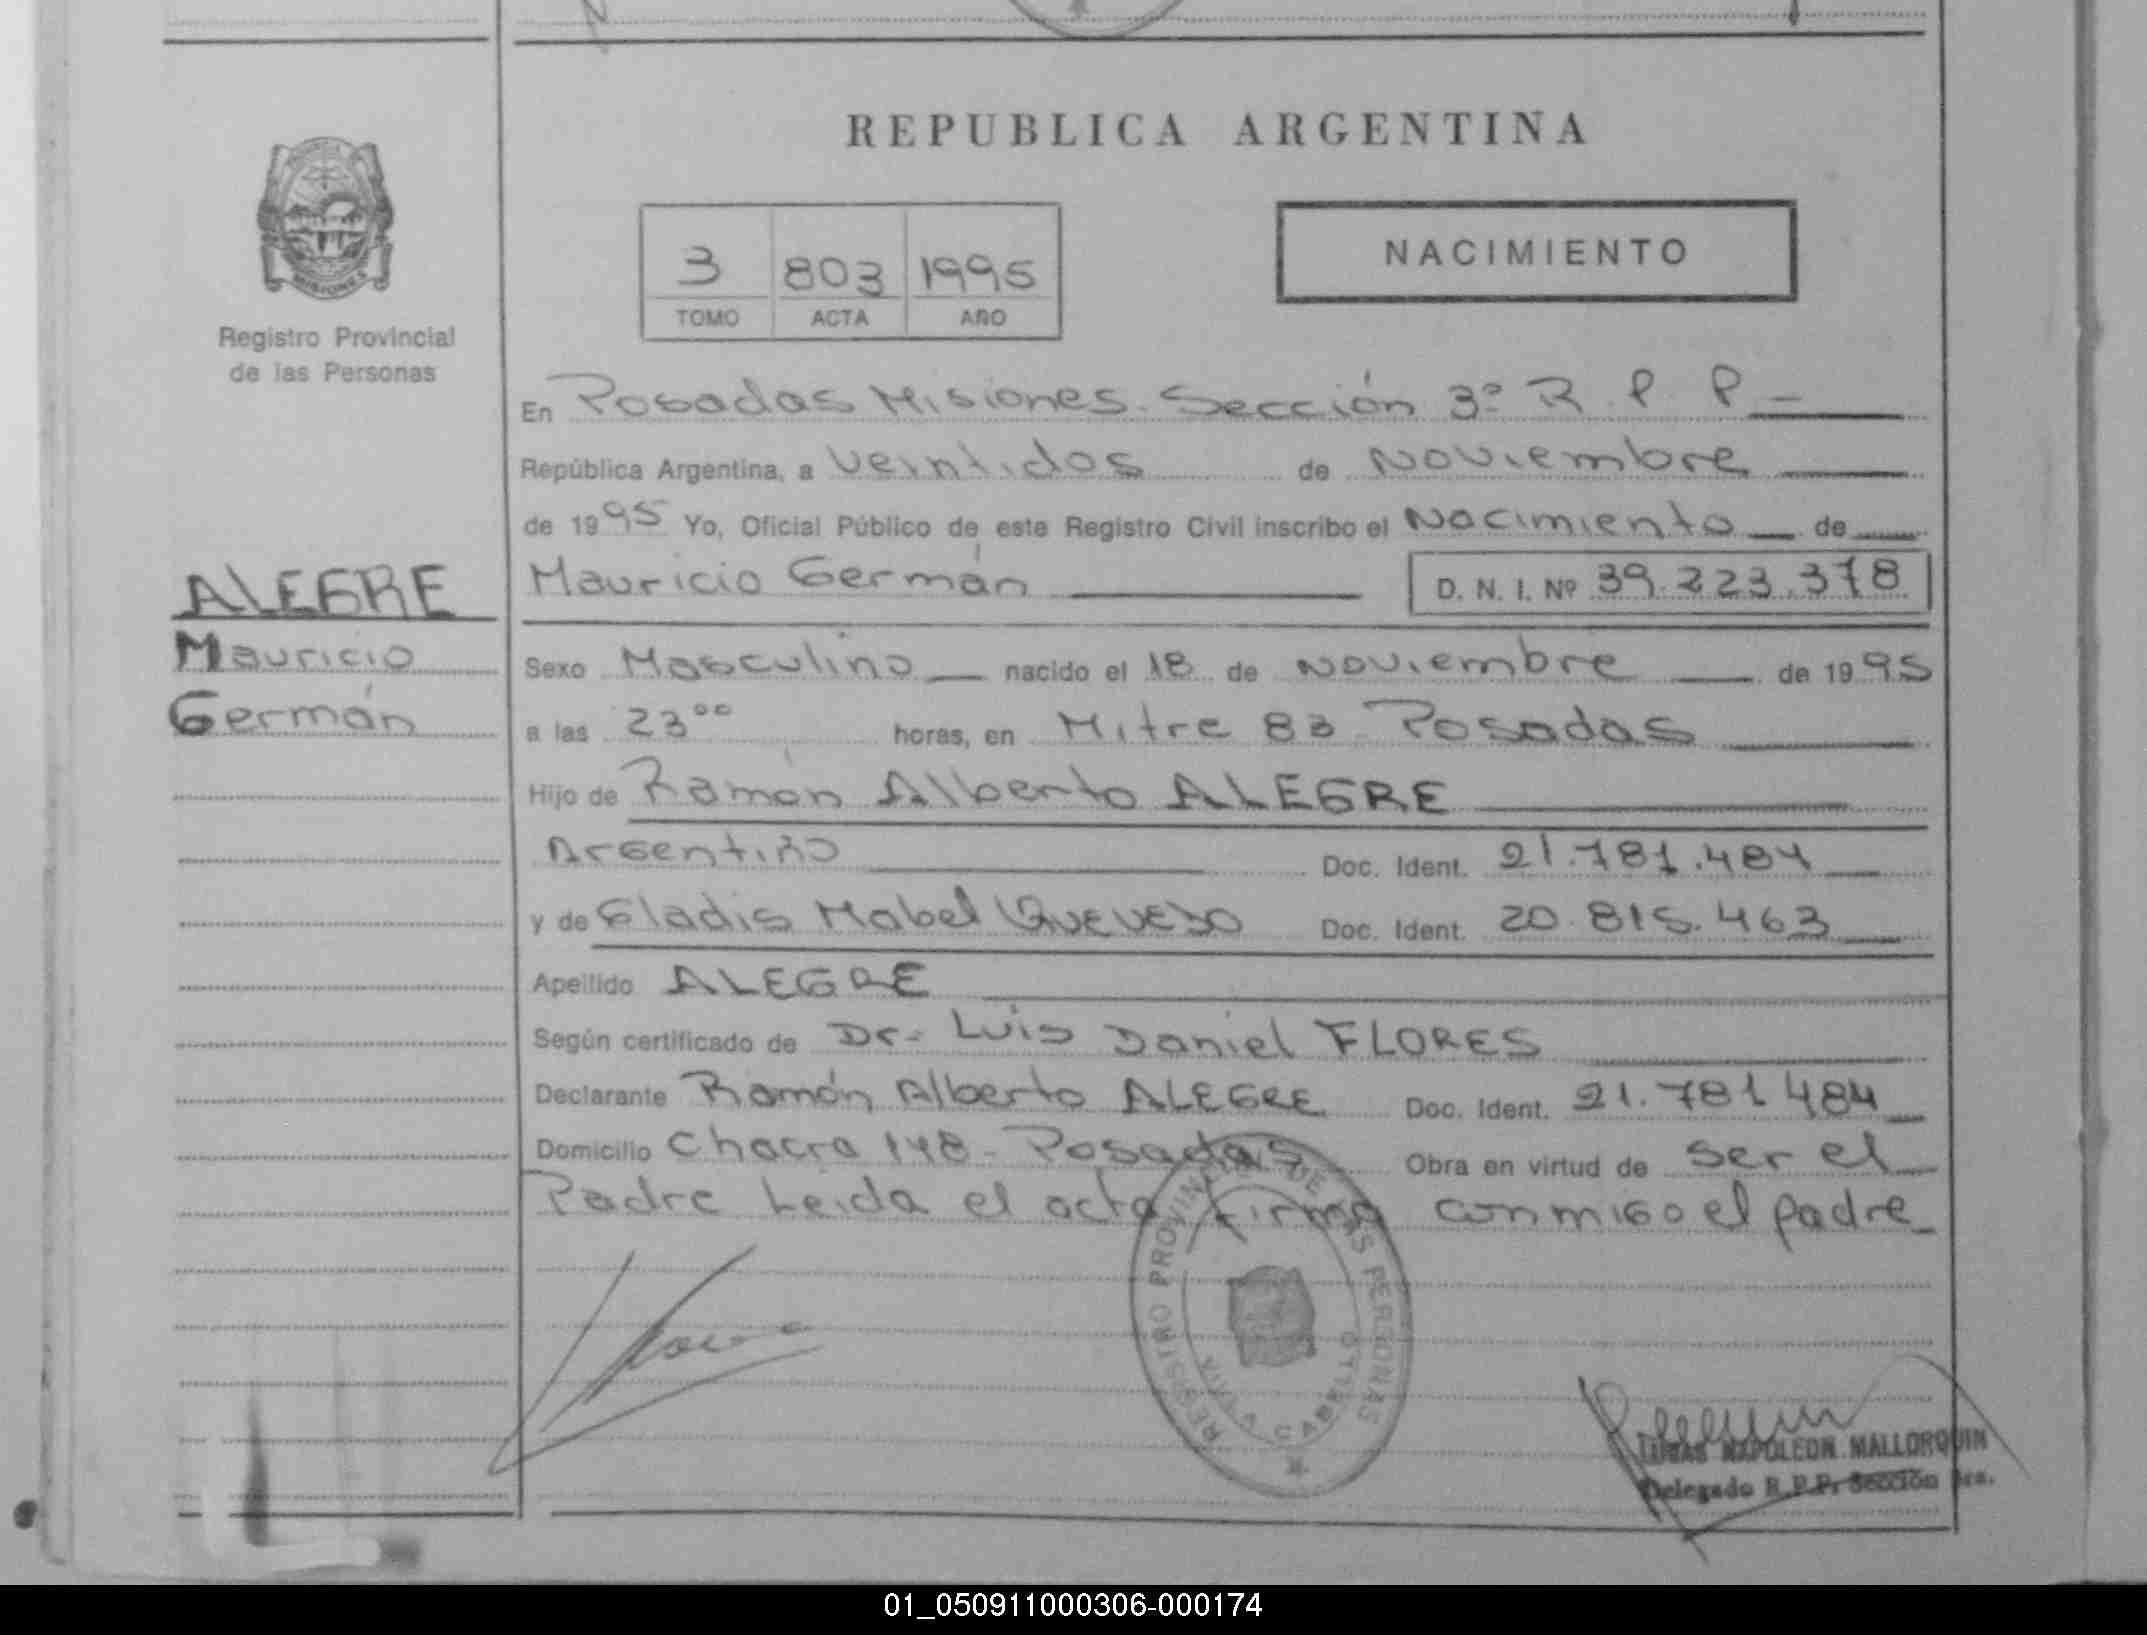 REPUBLICA ARGENTINA
MISIONES
Registro Provincial
de las Personas
3 803 1995
TOMO ACTA AÑO
NACIMIENTO
En Posadas Misiones. Sección 3º R. P. P.
República Argentina, a veintidos de Noviembre
de 1995 Yo, Oficial Público de este Registro Civil inscribo el Nacimiento de
Mauricio Germán D. N. I. Nº 39.223.378
ALEGRE
Mauricio
Germán
Sexo Masculino nacido el 18 de Noviembre de 1995
a las 23⁰⁰ horas, en Mitre 83 Posadas
Hijo de Ramón Alberto ALEGRE
Argentino Doc. Ident. 21.781.484
y de Gladis Mabel QUEVEDO Doc. Ident. 20.815.463
Apellido ALEGRE
Según certificado de Dr. Luis Daniel FLORES
Declarante Ramón Alberto ALEGRE Doc. Ident. 21.781484
Domicilio Chacra 148 - Posadas Obra en virtud de ser el
Padre Leida el acta firma conmigo el padre
REGISTRO PROVINCIAL DE LAS PERSONAS
VILLA CABELLO
LUCAS NAPOLEON MALLORQUIN
Delegado R.P.P. Sección 3ra.
01_050911000306-000174